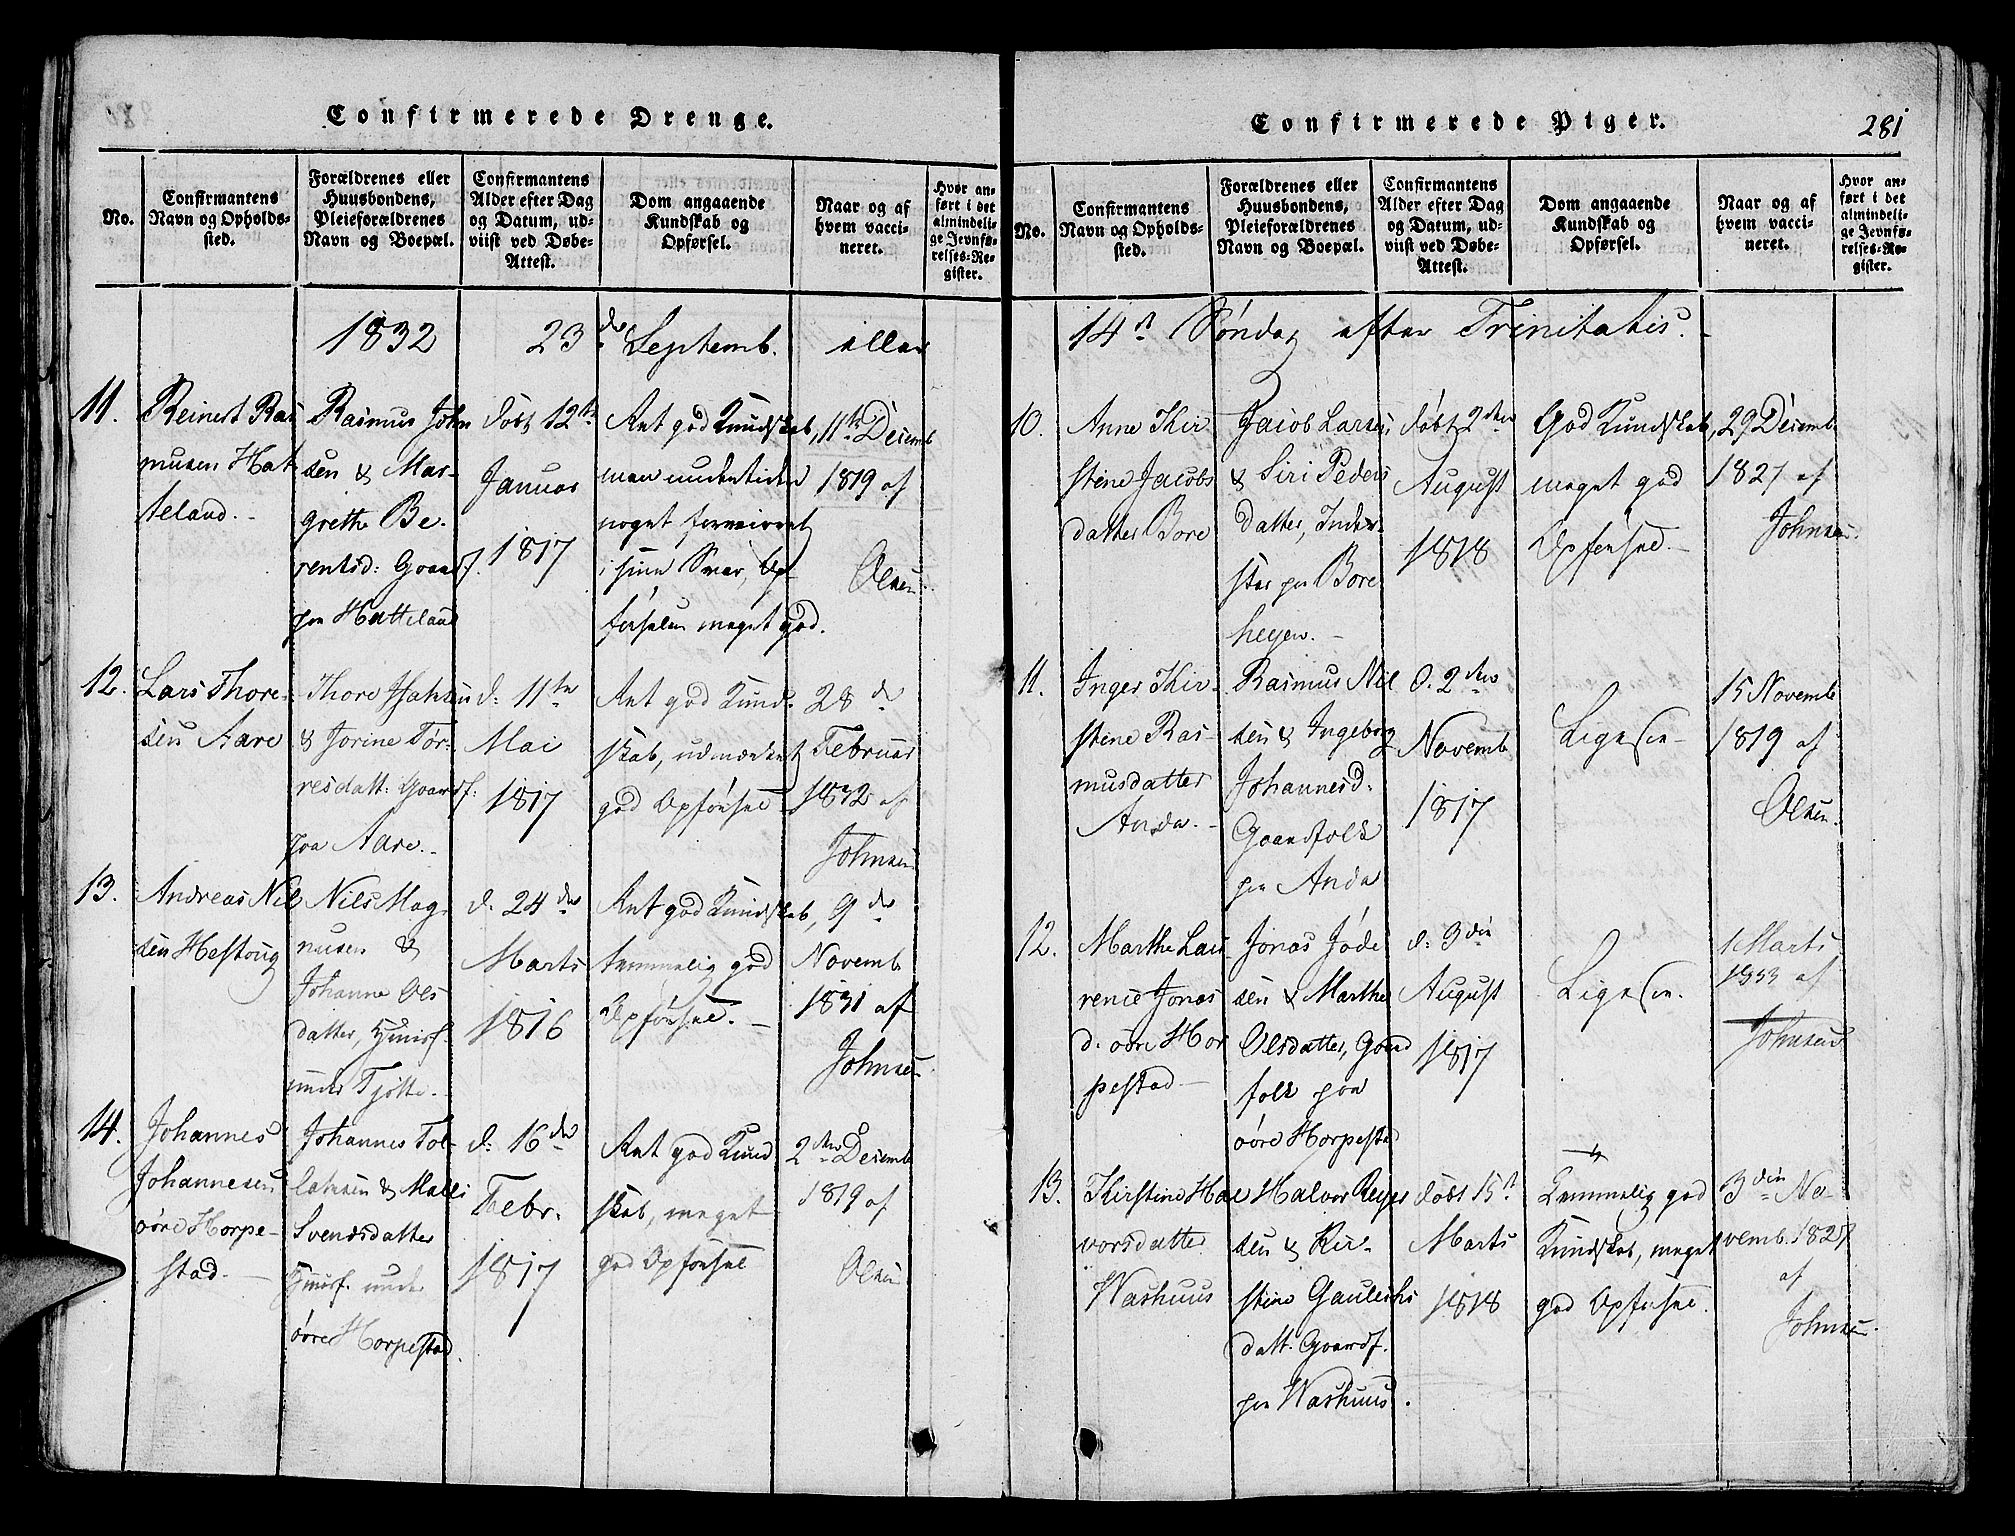 Confirmerede Drenge.
No.
Confirmantens Navn og Opholds-
sted.
Forældrenes eller
Huusbondens,
Pleieforældrenes
Navn og Boepæl.
Confirmantens
Alder efter Dag
og Datum, ud-
viist ved Døbe-
Attest.
Dom angaaende
Kundskab og
Opførsel.
Naar og af
hvem vacci-
neret.
Hvor an-
ført i det
almindeli-
ge Jevnfø-
relses-Re-
gister.
1832 23de Septemb. eller
11.
Reinert Ras
musen Hat
teland.
Rasmus John
sen & Mar-
grethe Be-
rentsd: Gaardf.
paa Hatteland
døbt 12te
Januar
1817
Ret god Kundskab,
men undertiden
noget forvirret
i sine Svar, Op-
førselen meget god.
11te Decemb
1819 af
Olsen.
12.
Lars Thore-
sen Aare
Thore
& Jorine Tør-
resdatt: Gaardf:
paa Aare.
d: 11te
Mai
1817
Ret god Kund-
skab, udmærket
god Opførsel
28de
Februar
1832 af
Johnsen
13.
Andreas Nil
sen Hestoug
Nils Mag-
nusen &
Johanne Ols
datter, Huusf.
under Tjøtte.
d: 24de
Marts
1816
Ret god Kundskab,
temmelig god
Opførsel.
9de
Novemb
1831 af
Johnsen
14.
Johannes
Johannesen
øvre Horpe-
stad.
Johannes Tol-
laksen & Malli
Svendsdatter
Huusf. under
øvre Horpestad.
d: 16de
Febr.
1817
Ret god Kund
skab, meget
god Opførsel
2den Decemb
1819 af
Olsen
Confirmerede Piger.
281
No.
Confirmantens
Navn og Opholds-
sted.
Forældrenes eller
Huusbondens,
Pleieforældrenes
Navn og Boepæl.
Confirmantens
Alder efter Dag
og Datum, ud-
viist ved Døbe-
Attest.
Dom angaaende
Kundskab og
Opførsel.
Naar og af
hvem vacci-
neret.
Hvor an-
ført i det
almindeli-
ge Jevnfø-
relses-Re-
gister.
14de Søndag efter Trinitatis.
10.
Anne Kir
stine Jacobs
datter Bore
Jacob Larsen
& Siri Peders
datter, Inder-
ster paa Bore
heyen.
døbt 2den
August
1818
God Kundskab,
meget god
Opførsel.
29 Decemb
1827 af
Johnsen.
11.
Inger Kir-
stine Ras-
musdatter
Anda.
Rasmus Nil
sen & Ingeborg
Johannesd.
Gaardfolk
paa Anda
d. 2den
Novemb
1817
Ligesaa
15 Novemb
1819 af
Olsen.
12.
Marthe Lau
renie Jonas
d. øvre Hor
pestad
Jonas Jøde
sen & Marthe
Olsdatter, Gaard
folk paa
øvre Horpestad
d: 3die
August
1817
Ligesaa.
1 Marts
1833 af
Johnsen
13.
Kirstine Hal
vorsdatter
Washuus
Halvor Reyer
sen & Kir-
stine Gaulichs
datt. Gaardf.
paa Washuus.
døbt 15de
Marts
1818
Temmelig god
Kundskab, meget
god Opførsel.
3die No-
vemb. 1827
af
Johnsen.